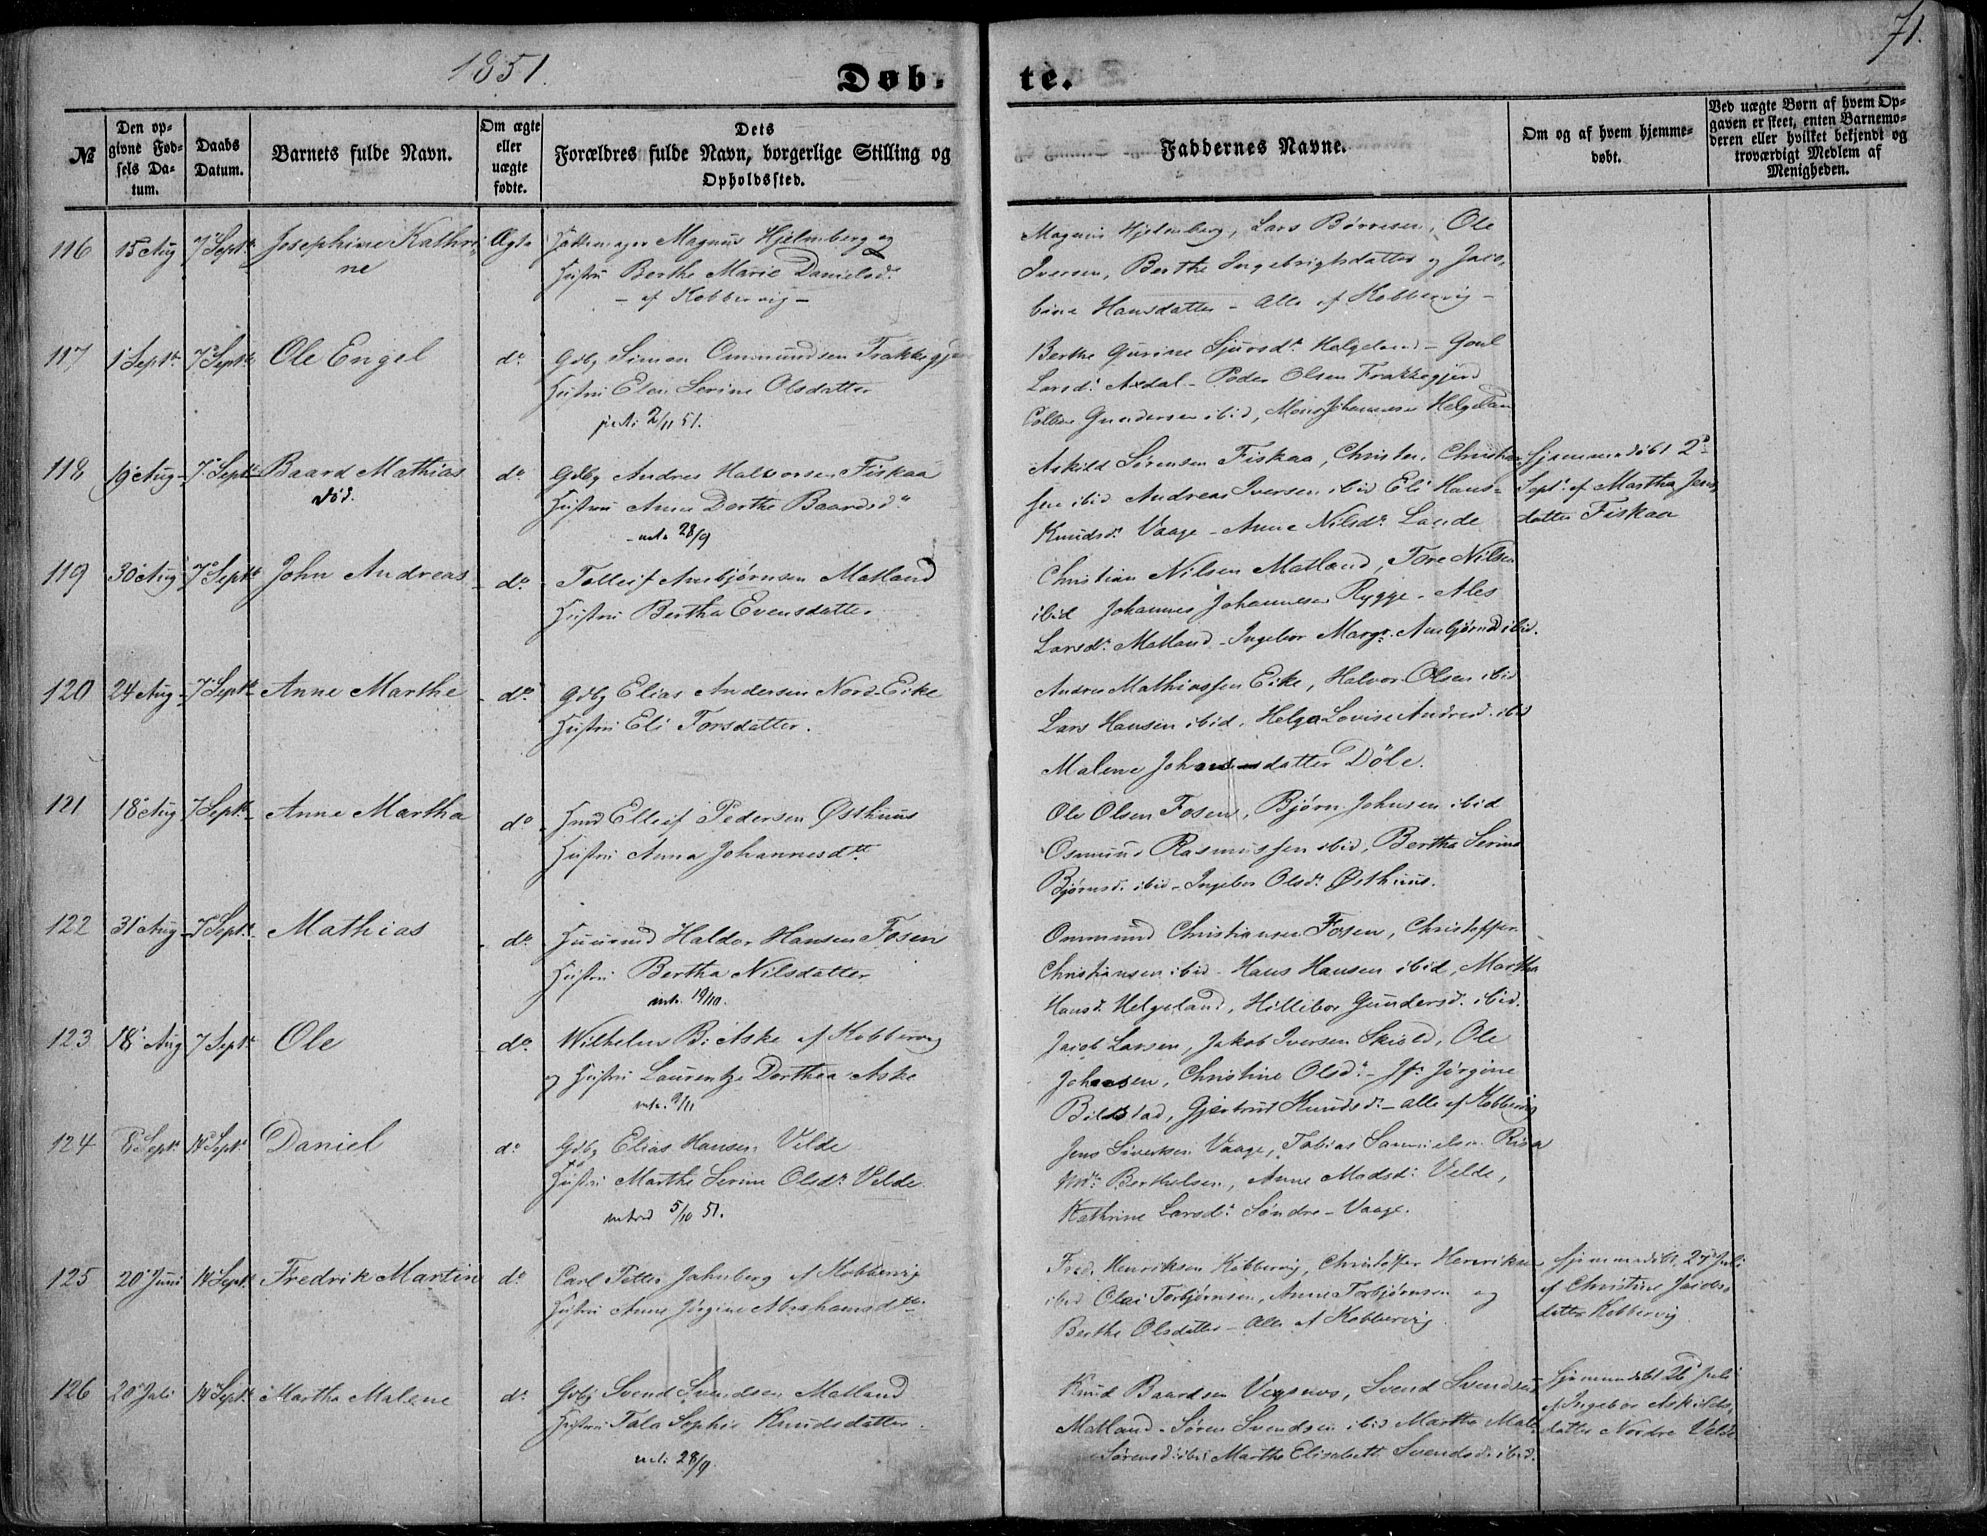 1851.
71.
Døb-
te.
№
Den op-
givne Fød-
sels Da-
tum.
Daabs
Datum.
Barnets fulde Navn.
Om ægte
eller
uægte
fødte.
Dets
Forældres fulde Navn, borgerlige Stilling og
Opholdssted.
Faddernes Navne.
Om og af hvem hjemme-
døbt.
Ved uægte Børn af hvem Op-
gaven er skeet, enten Barnemo-
deren eller hvilket bekjendt og
troværdigt Medlem af
Menigheden.
116 15 Aug 7 Sept. Josephine Kathri-
ne
Ægte
Magnus Hjelmberg og
Hustru Berthe Marie Danielsd.
- af Kobbervig -
Magnus Hjelmberg, Lars Børresen, Ole
Iversen, Berthe Ingebrigtsdatter og Jaco-
bine Hansdatter - Alle af Kobbervig -
117 1 Sept. 7 Sept. Ole Engel do. Gdbg Simon Ommundsen Frakkegjer
Hustru Elen Serine Olsdatter
2/11 51.
Berthe Gurine Sjursdr. Helgeland -
Larsd. Axdal - Peder Olsen Frakkegjerd
Gundersen ibid, Mons Johannesen Helgelan
118 19 Aug 7 Sept. Baard Mathias
død.
do. Gdbg Andres Halvorsen Fiskaa
Hustru Anne Dorthe Baardsdr
28/9
Askild Sørensen Fiskaa, Christen Christian
sen ibid Andreas Iversen ibid Eli Hans-
Knudsdr. Vaage - Anne Nilsdr. Lande
Hjemmedøbt 2
Sept. af Martha Jens
datter Fiskaa
119 30 Aug 7 Sept. John Andreas do. Tolleif Ambjørnsen Matland
Hustru Bertha Evensdatter
Christian Nilsen Matland, Tore Nilsen
ibid Johannes Johannesen Rygge - Ales
Larsdr. Matland - Ingebor Margr. Ambjørnsd ibid.
120 24 Aug 7 Sept. Anne Marthe do. Gdbg Elias Andersen Nord-Eike
Hustru Eli Torsdatter.
Andres Mathiassen Eike, Halvor Olsen ibid
Lars Hansen ibid, Helga Lovise Andresd. ibid
Malene Johannesdatter Døle.
121 18 Aug 7 Sept. Anne Martha do. Elleif Pedersen Østhuus
Hustru Anna Johannesdtt.
Ole Olsen Fosen, Bjørn Johnsen ibid
Osmund Rasmussen ibid, Bertha Serine
Bjørnsd. ibid - Ingebor Olsdr. Østhuus.
122 31 Aug 7 Sept. Mathias do. Huusmd Haldor Hansen Fosen
Hustru Bertha Nilsdatter
19/10.
Ommund Christiansen Fosen, Christoffer
Christiansen ibid - Hans Hansen ibid, Martha
Hansd. Helgeland, Hillebor Gundersd. ibid.
123 18 Aug 7 Sept. Ole do. Wilhelm B. Aske af Kobbervig
og Hustru Laurentze Dorthea Aske
2/11
Jacob Larsen, Jakob Iversen Skiold, Ole
Johnsen, Christine Olsdr. - Jfr. Jørgine
Bilstad, Gjertrud Knudsdr. - alle af Kobbervig
124 8 Sept. 14 Sept. Daniel do. Gdbg Elias Hansen Velde
Hustru Marthe Serine Olsdr. Velde
5/10 51.
Jens Siversen Vaage, Tobias Samuelsen Risa
Bertholsen, Anne Madsdr. Velde,
Kathrine Larsdr. Søndre-Vaage.
125 20 Juni 14 Sept. Fredrik Martin do. Carl Petter Jahnberg af Kobbervig
Hustru Anne Jørgine Abrahamsdtt.
Fred. Henriksen Kobbervig, Christoffer Henriksen
ibid Olai Torbjørnsen, Anne Torbjørnsen og
Berthe Olsdatter - Alle af Kobbervig
Hjemmedøbt 27 Juli
af Christine Jacobs-
datter Kobbervig
126 20 Juli 14 Sept. Martha Malene do. Gdbg Svend Svendsen Matland
Hustru Tala Sophie Knudsdatter.
28/9.
Knud Baardsen Vegsnes, Svend Svendsen
Matland - Søren Svendsen ibid Martha Male
Sørensd. ibid Marthe Elisabeth Svendsd. ibid.
Hjemmedøbt 26 Juli
af Ingebor Askilds-
datter Nordre Velde